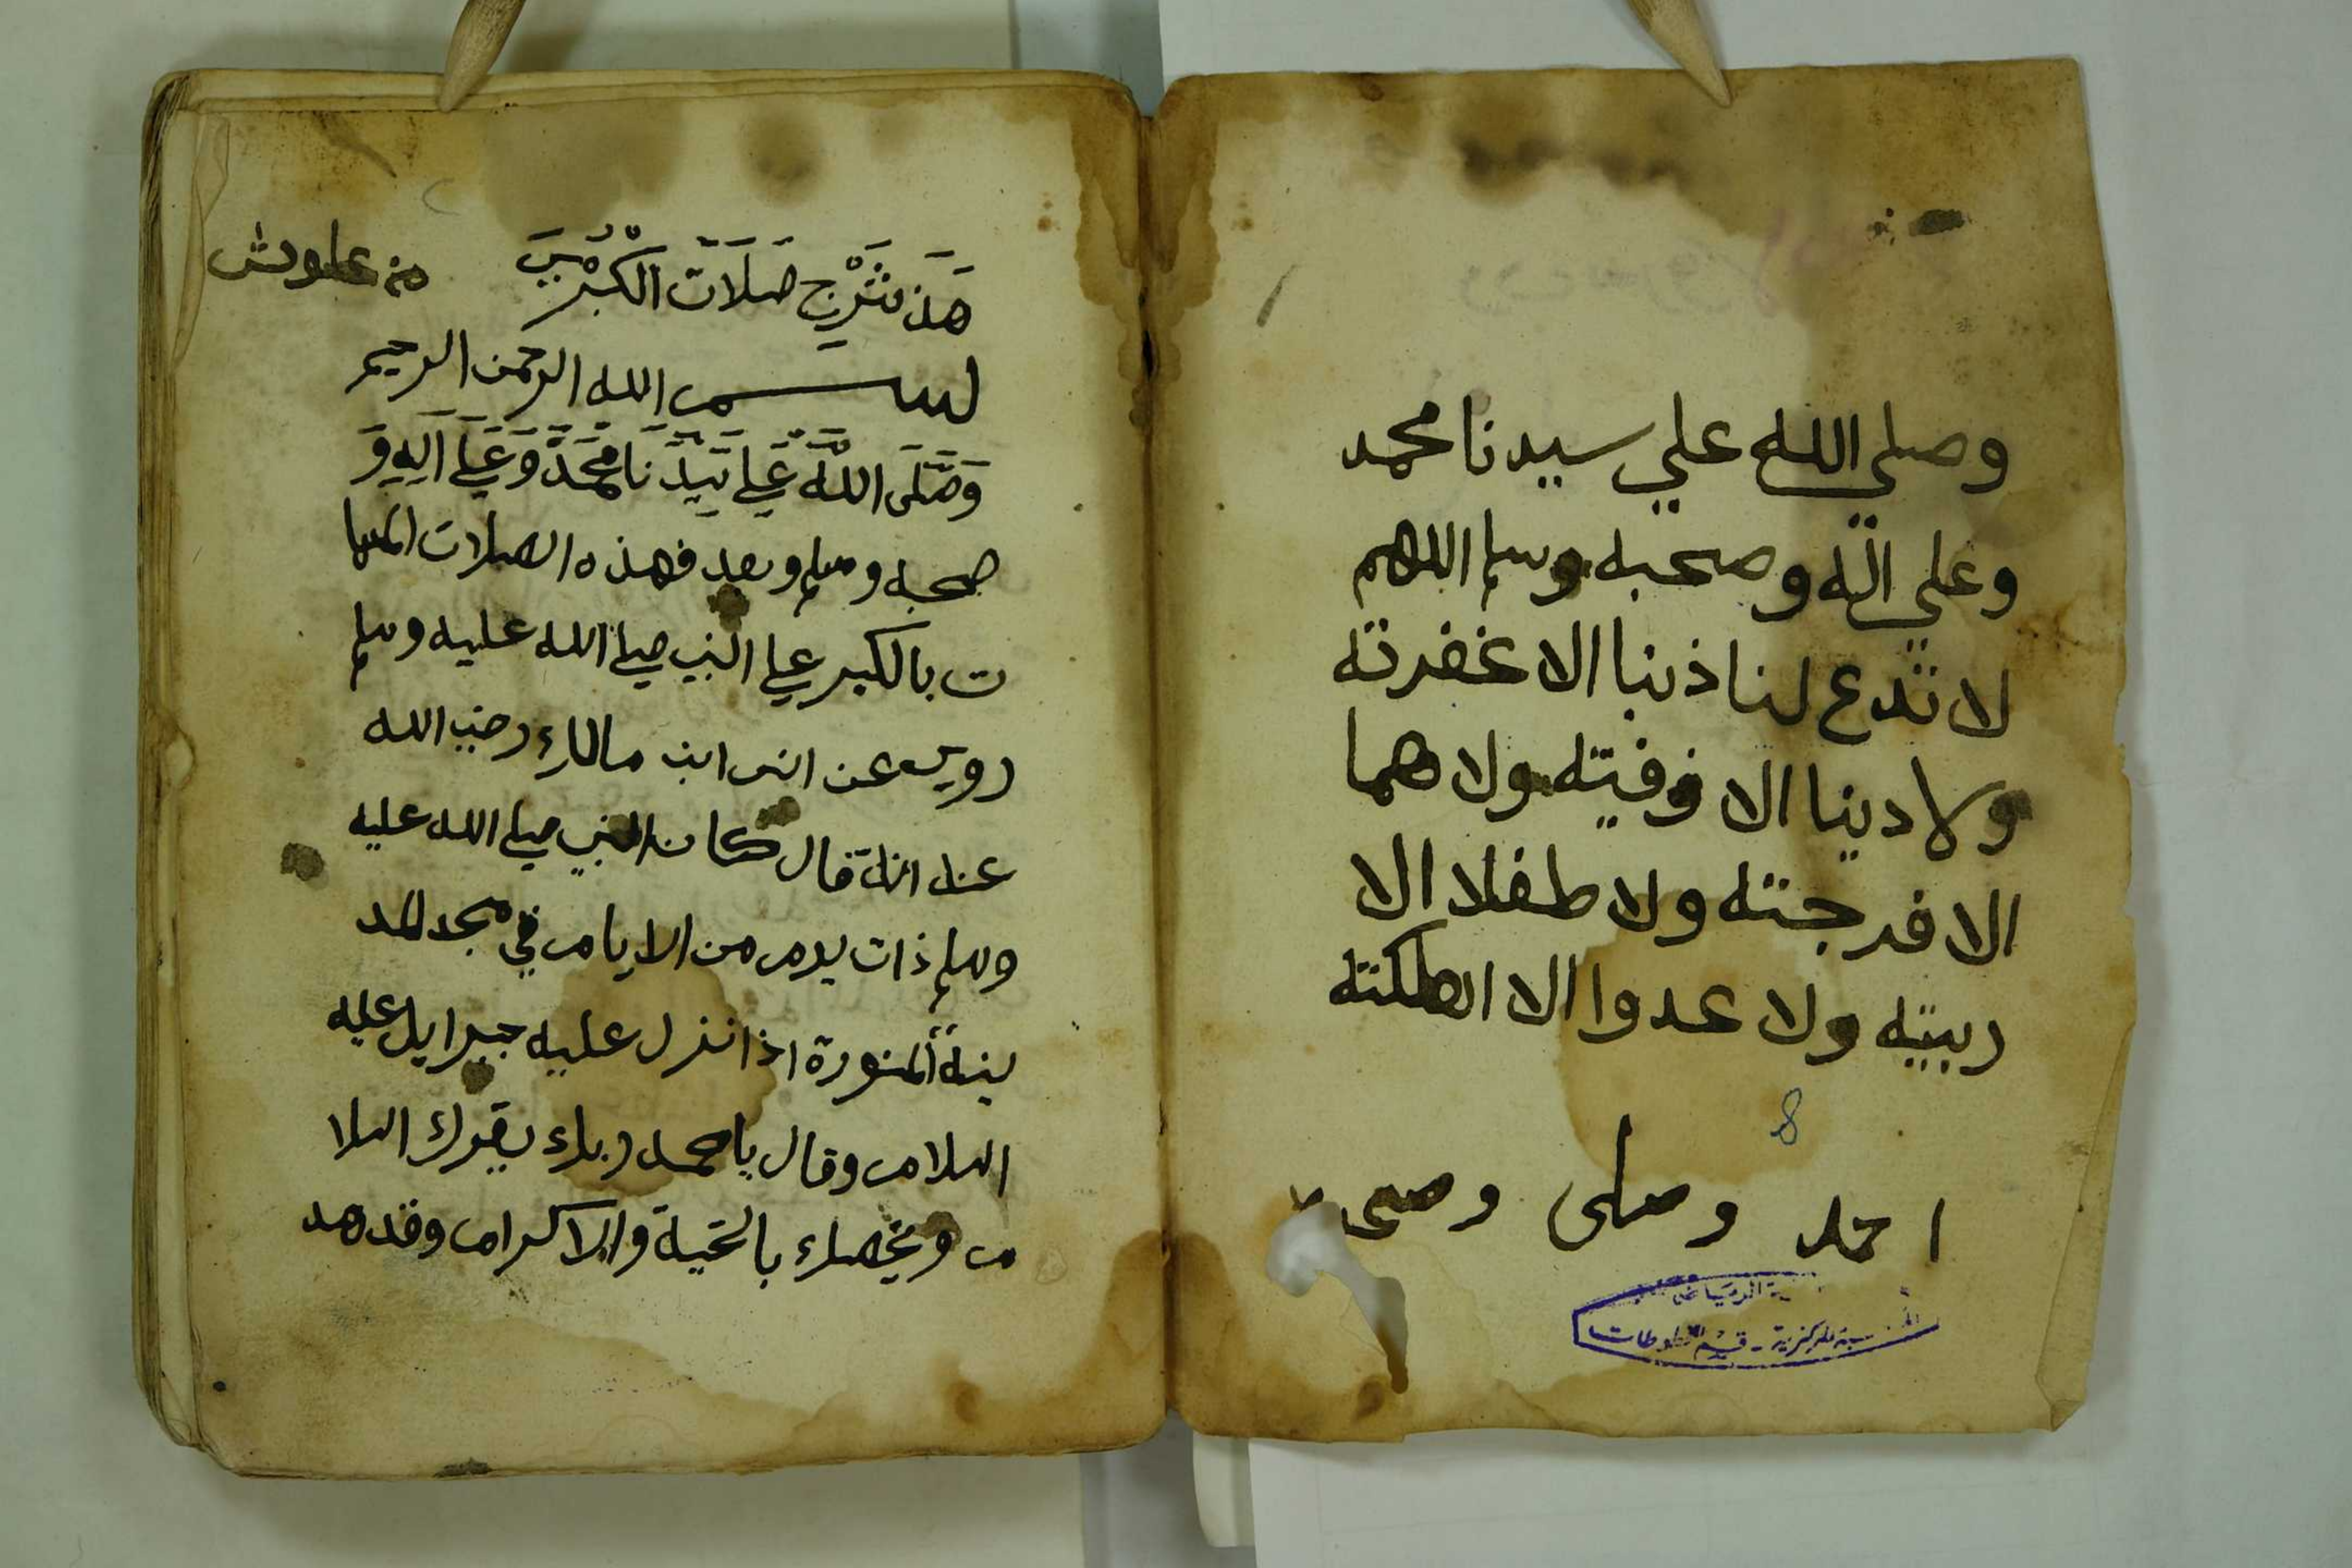 وصلي الله علي سيدنا محمد
وعلي اله وصحبه وسلم اللهم
لا تدع لنا ذنبا الا غفرته
ولا دينا الا وفيته ولا هما
الا فرجته ولا طفلا الا
ربيته ولا عدوا الا اهلكته
8
احمد وصلى وصحبه
الرياض
المركزية - قسم المخطوطات
هَذَ شَرْحِ صَلَاَتَ الكُبْرَ
بسم الله الرحمن الرحيم
وَصَلَى اللَّهُ عَلي سَيِدَنَا مُحَمَدَ وَعَلَي اَلِهِ وَ
صحبه وسلم وبعد فهذه الصلات المسما
ت بالكبر علي النبي صلي الله عليه وسلم
روي عن انس ابن مالك رضي الله
عنه انه قال كان النبي صلي الله عليه
وسلم ذات يوم من الايام في مسجد المد
ينة المنورة اذا نزل عليه جبرايل عليه
السلام وقال يا محمد ربك يقرك السلا
م ويخصك بالتحية والاكرام وقد هد